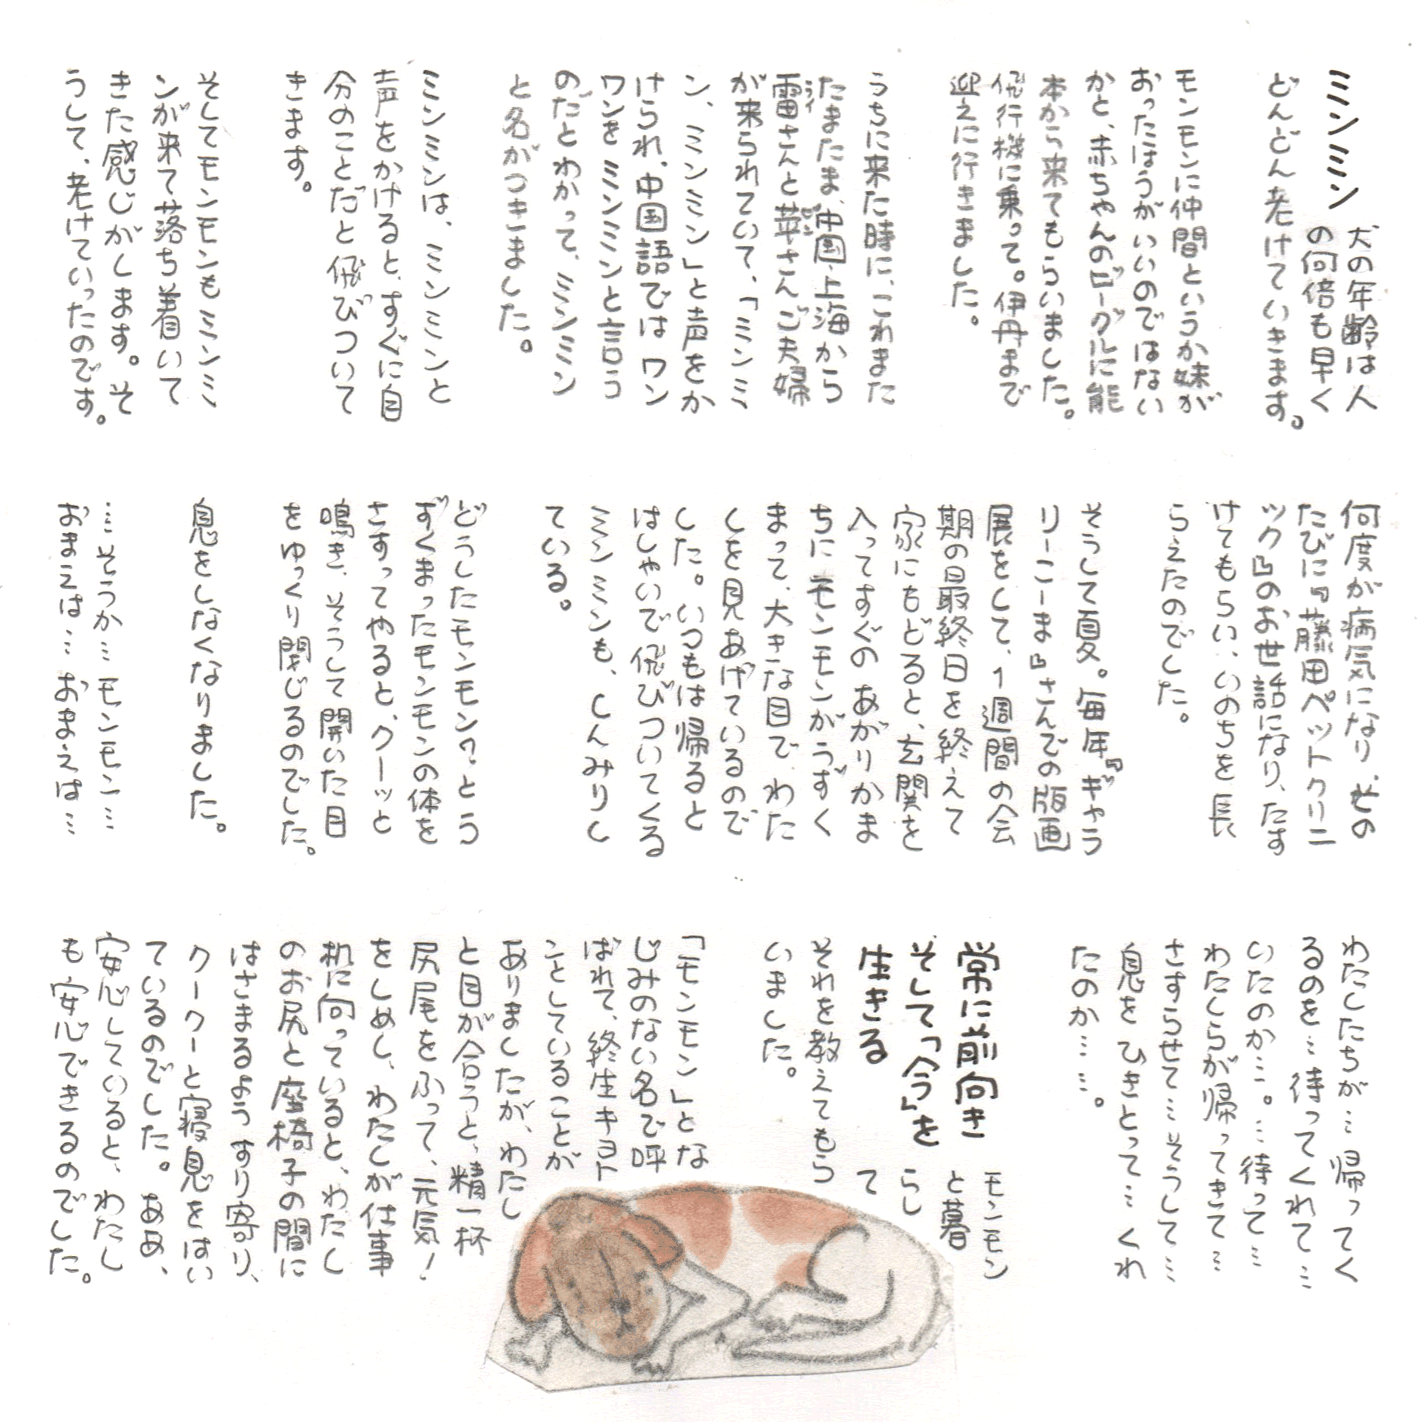 ミンミン
犬の年齢は人
の何倍も早く
どんどん老けていきます。
モンモンに仲間というか妹が
おったほうがいいのではない
かと、赤ちゃんのビーグルに能
本から来てもらいました。
飛行機に乗って。伊丹まで
迎えに行きました。
うちに来た時に、これまた
たまたま、中国・上海から
雷さんと苹さんご夫婦
が来られていて、「ミンミ
ン、ミンミン」と声をか
けられ、中国語では ワン
ワンを ミンミンと言う
のだとわかって、ミンミン
と名がつきました。
ミンミンは、ミンミンと
声をかけると、すぐに自
分のことだと飛びついて
きます。
そしてモンモンもミンミ
ンが来て落ち着いて
きた感じがします。そ
うして、老けていったのです。
何度か病気になり、その
たびに『藤田ペットクリニ
ック』のお世話になり、たす
けてもらい、いのちを長
らえたのでした。
そうして夏。毎年『ギャラ
リーこーま』さんでの版画
展をして、1週間の会
期の最終日を終えて
家にもどると、玄関を
入ってすぐの あがりかま
ちに モンモンがうずく
まって、大きな目で、わた
しを見あげているので
した。いつもは帰ると
はしゃいで飛びついてくる
ミンミンも、しんみりし
ている。
どうしたモンモン?とう
ずくまったモンモンの体を
さすってやると、クーッと
鳴き、そうして開いた目
をゆっくり閉じるのでした。
息をしなくなりました。
…そうか… モンモン…
おまえは… おまえは…
わたしたちが… 帰ってく
るのを… 待ってくれて…
いたのか…。…待って…
わたしらが帰ってきて…
さすらせて… そうして…
息を ひきとって… くれ
たのか… …。
常に前向き
そして「今」を
生きる
モンモン
と暮
らし
て
それを教えてもら
いました。
「モンモン」とな
じみのない名で呼
ばれて、終生キョト
ことしていることが
ありましたが、わたし
と目が合うと、精一杯
尻尾をふって、元気!
をしめし、わたしが仕事
机に向っていると、わたし
のお尻と座椅子の間に
はさまるようすり寄り、
クークーと寝息をはい
ているのでした。ああ、
安心していると、わたし
も安心できるのでした。